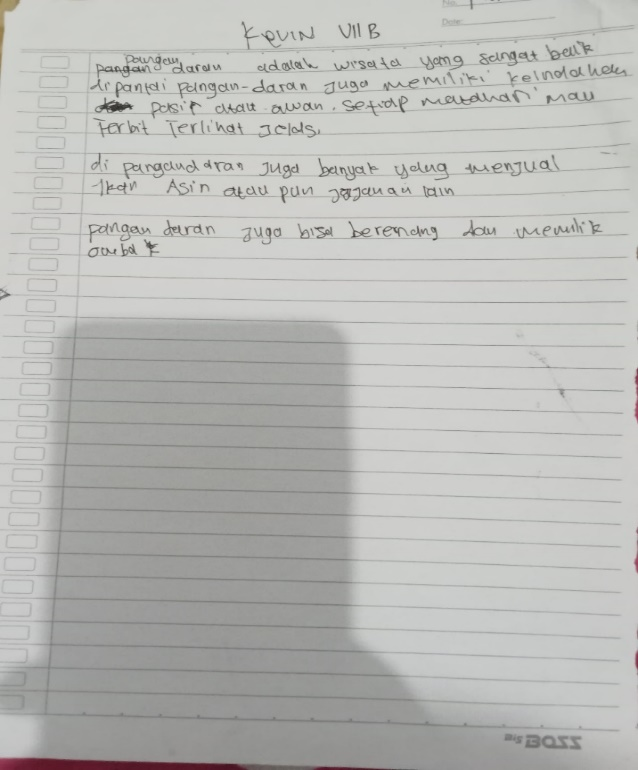 Kevin VII B
No:
Date:
pangan
pangan daran adalah wisata yang sangat beik
dipantai pangan-daran Juga memiliki keindahan
pasir atau awan. setiap matahari mau
Terbit Terlihat Jelas.
di pangandaran Juga banyak yang menjual
-Ikan Asin atau pun jajanan lain
pangan daran Juga bisa berenang dan memilik
BIG BOSS